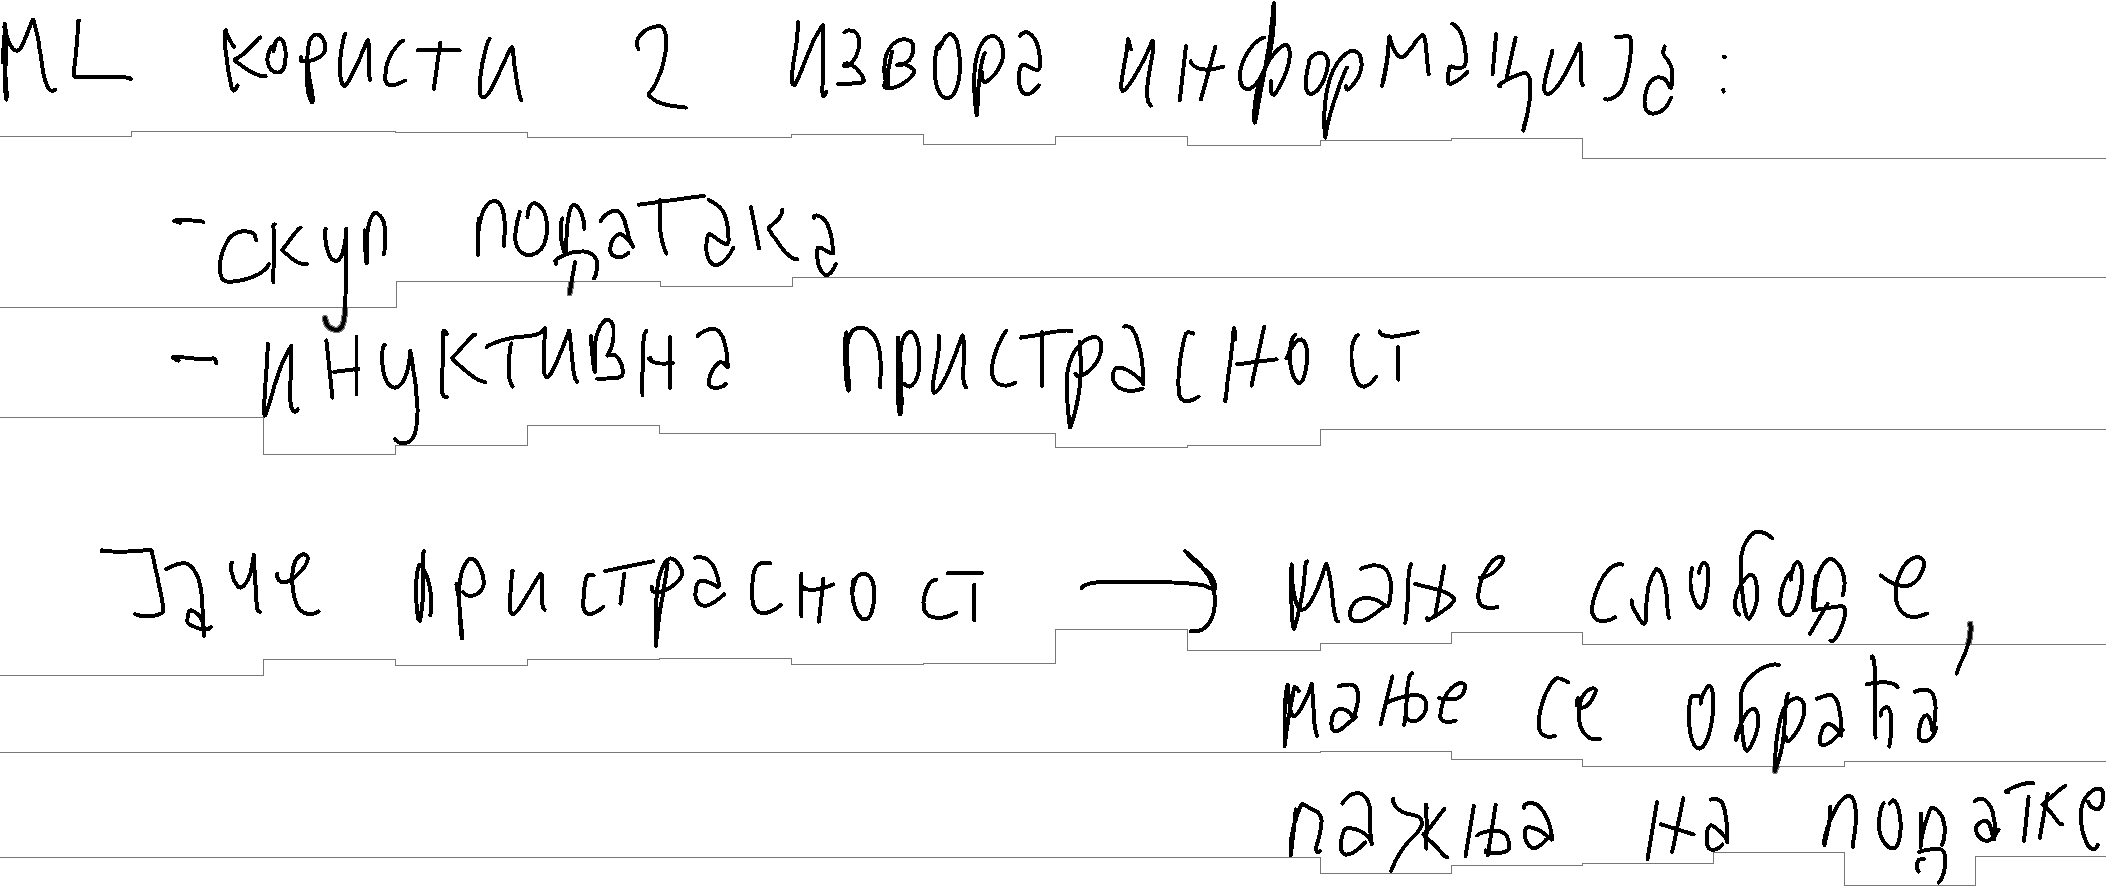 ML користи 2 извора информација:
-скуп података
- инуктивна пристрасност
Јаче пристрасност → мање слободе,
мање се обраћа
пажња на податке